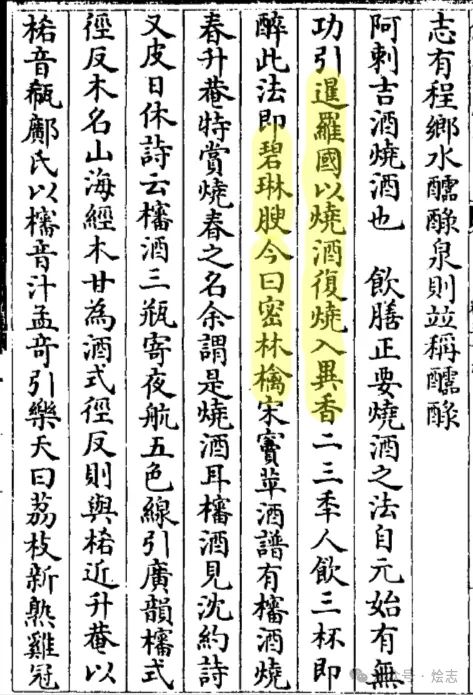 志有程鄉水醽醁泉則竝稱醽醁
阿剌吉酒燒酒也　飲膳正要燒酒之法自元始有無
功引暹羅國以燒酒復燒入異香二三秊人飲三杯即
醉此法即碧琳腴今曰密林檎宋竇苹酒譜有㰂酒燒
春升菴特賞燒春之名余謂是燒酒耳㰂酒見沈約詩
又皮日休詩云㰂酒三瓶寄夜航五色線引廣韻㰂式
徑反木名山海經木甘為酒式徑反則與近升菴以
音鄺氏以㰂音汁孟奇引樂天曰荔枝新熟雞冠
公众号·烩志